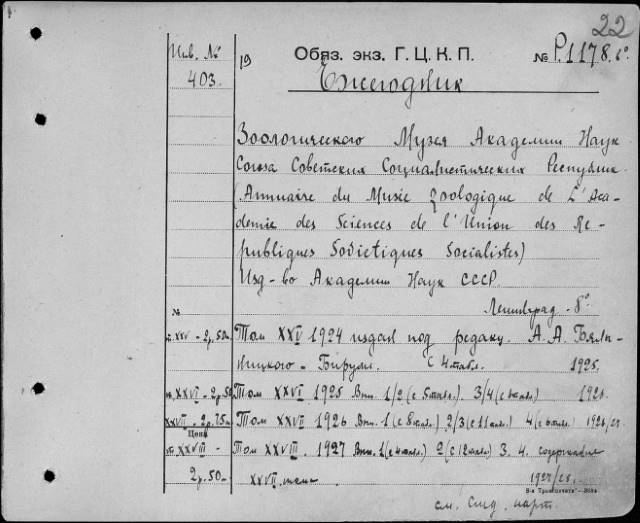 22
Инв. №
403.
19
Обяз. экз. Г.Ц.К.П.
№ Р.1178. 6°
Ежегодник
Зоологического Музея Академии Наук
Союза Советских Социалистических Республик
(Annuaire du Musée zoologique de L'Aca-
demie des Sciences de l'Union des Re-
publiques Sovietiques Socialistes)
Изд-во Академии Наук СССР.
Ленинград - 8°
№
т. XXV - 2р.50к. Том XXV 1924 издан под редакц. А.А. Бялы-
ницкого - Бирули. с 4 табл. 1925.
т. XXVI - 2р.50 Том XXVI 1925 Вып. 1/2 (с 5 табл.) 3/4 (с табл.)
XXVII - 2р.75к. Том XXVII 1926 Вып. 1 (с 8 табл.) 2/3 (с 11 табл.) 4 (с табл.)
Цена
т. XXVIII - Том XXVIII 1927 Вып. 1 (с 4 табл.) 2 (с 12 табл.) 3. 4. содержание
2р.50- XXVII тома 1927/28.
см. след. карт.